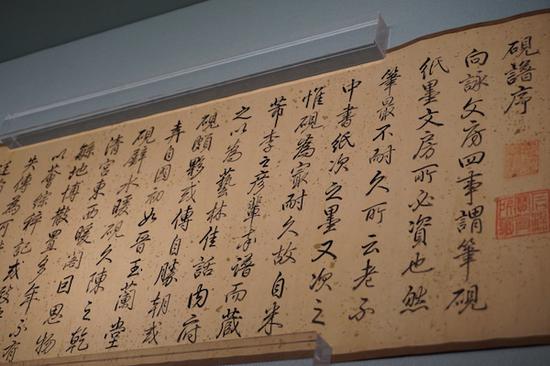 硯譜序
向詠文房四事謂筆硯
紙墨文房所必資也然
筆最不耐久所云老不
中書紙次之墨又次之
惟硯為最耐久故自米
芾李之彥輩率譜而藏
之以為藝林佳話內府
硯頗夥或傳自勝朝或
弆自國初如晉玉蘭堂
硯璧水暖硯久陳之乾
清宮東西暖閣因思物
地博散置多年
以薈綜粹記